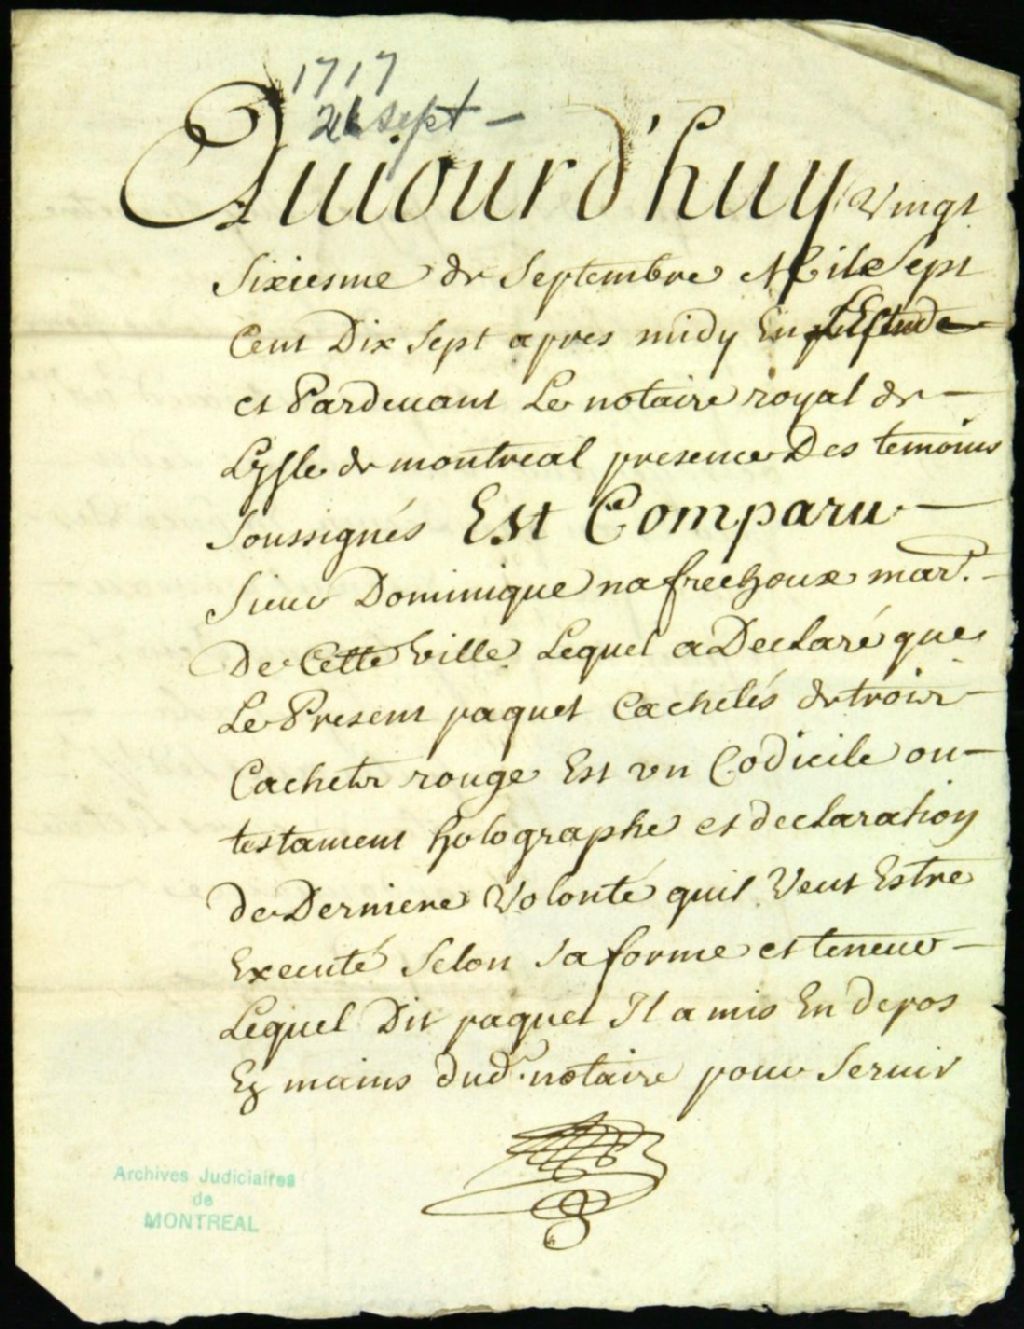 1717
26 sept -
Aujourd'huy Vingt
Sixiesme de Septembre Mil Sept
Cent Dix Sept apres midy En Estude
et Pardevant Le notaire royal de
Lysle de montreal presence Des temoins
Soussignés Est Comparu
Sieur Dominique nafrechoux mar.d
De Cette Ville Lequel a Declaré que
Le Present paquet Cachetés de trois
Cachets rouge Est un Codicile ou
testament holographe et declaration
de Derniere Volonté quil Veut Estre
Executé Selon Sa forme et teneur
Lequel Dit paquet Il a mis En depos
Ez mains dud. notaire pour Servir
Archives Judiciaires
de
MONTREAL